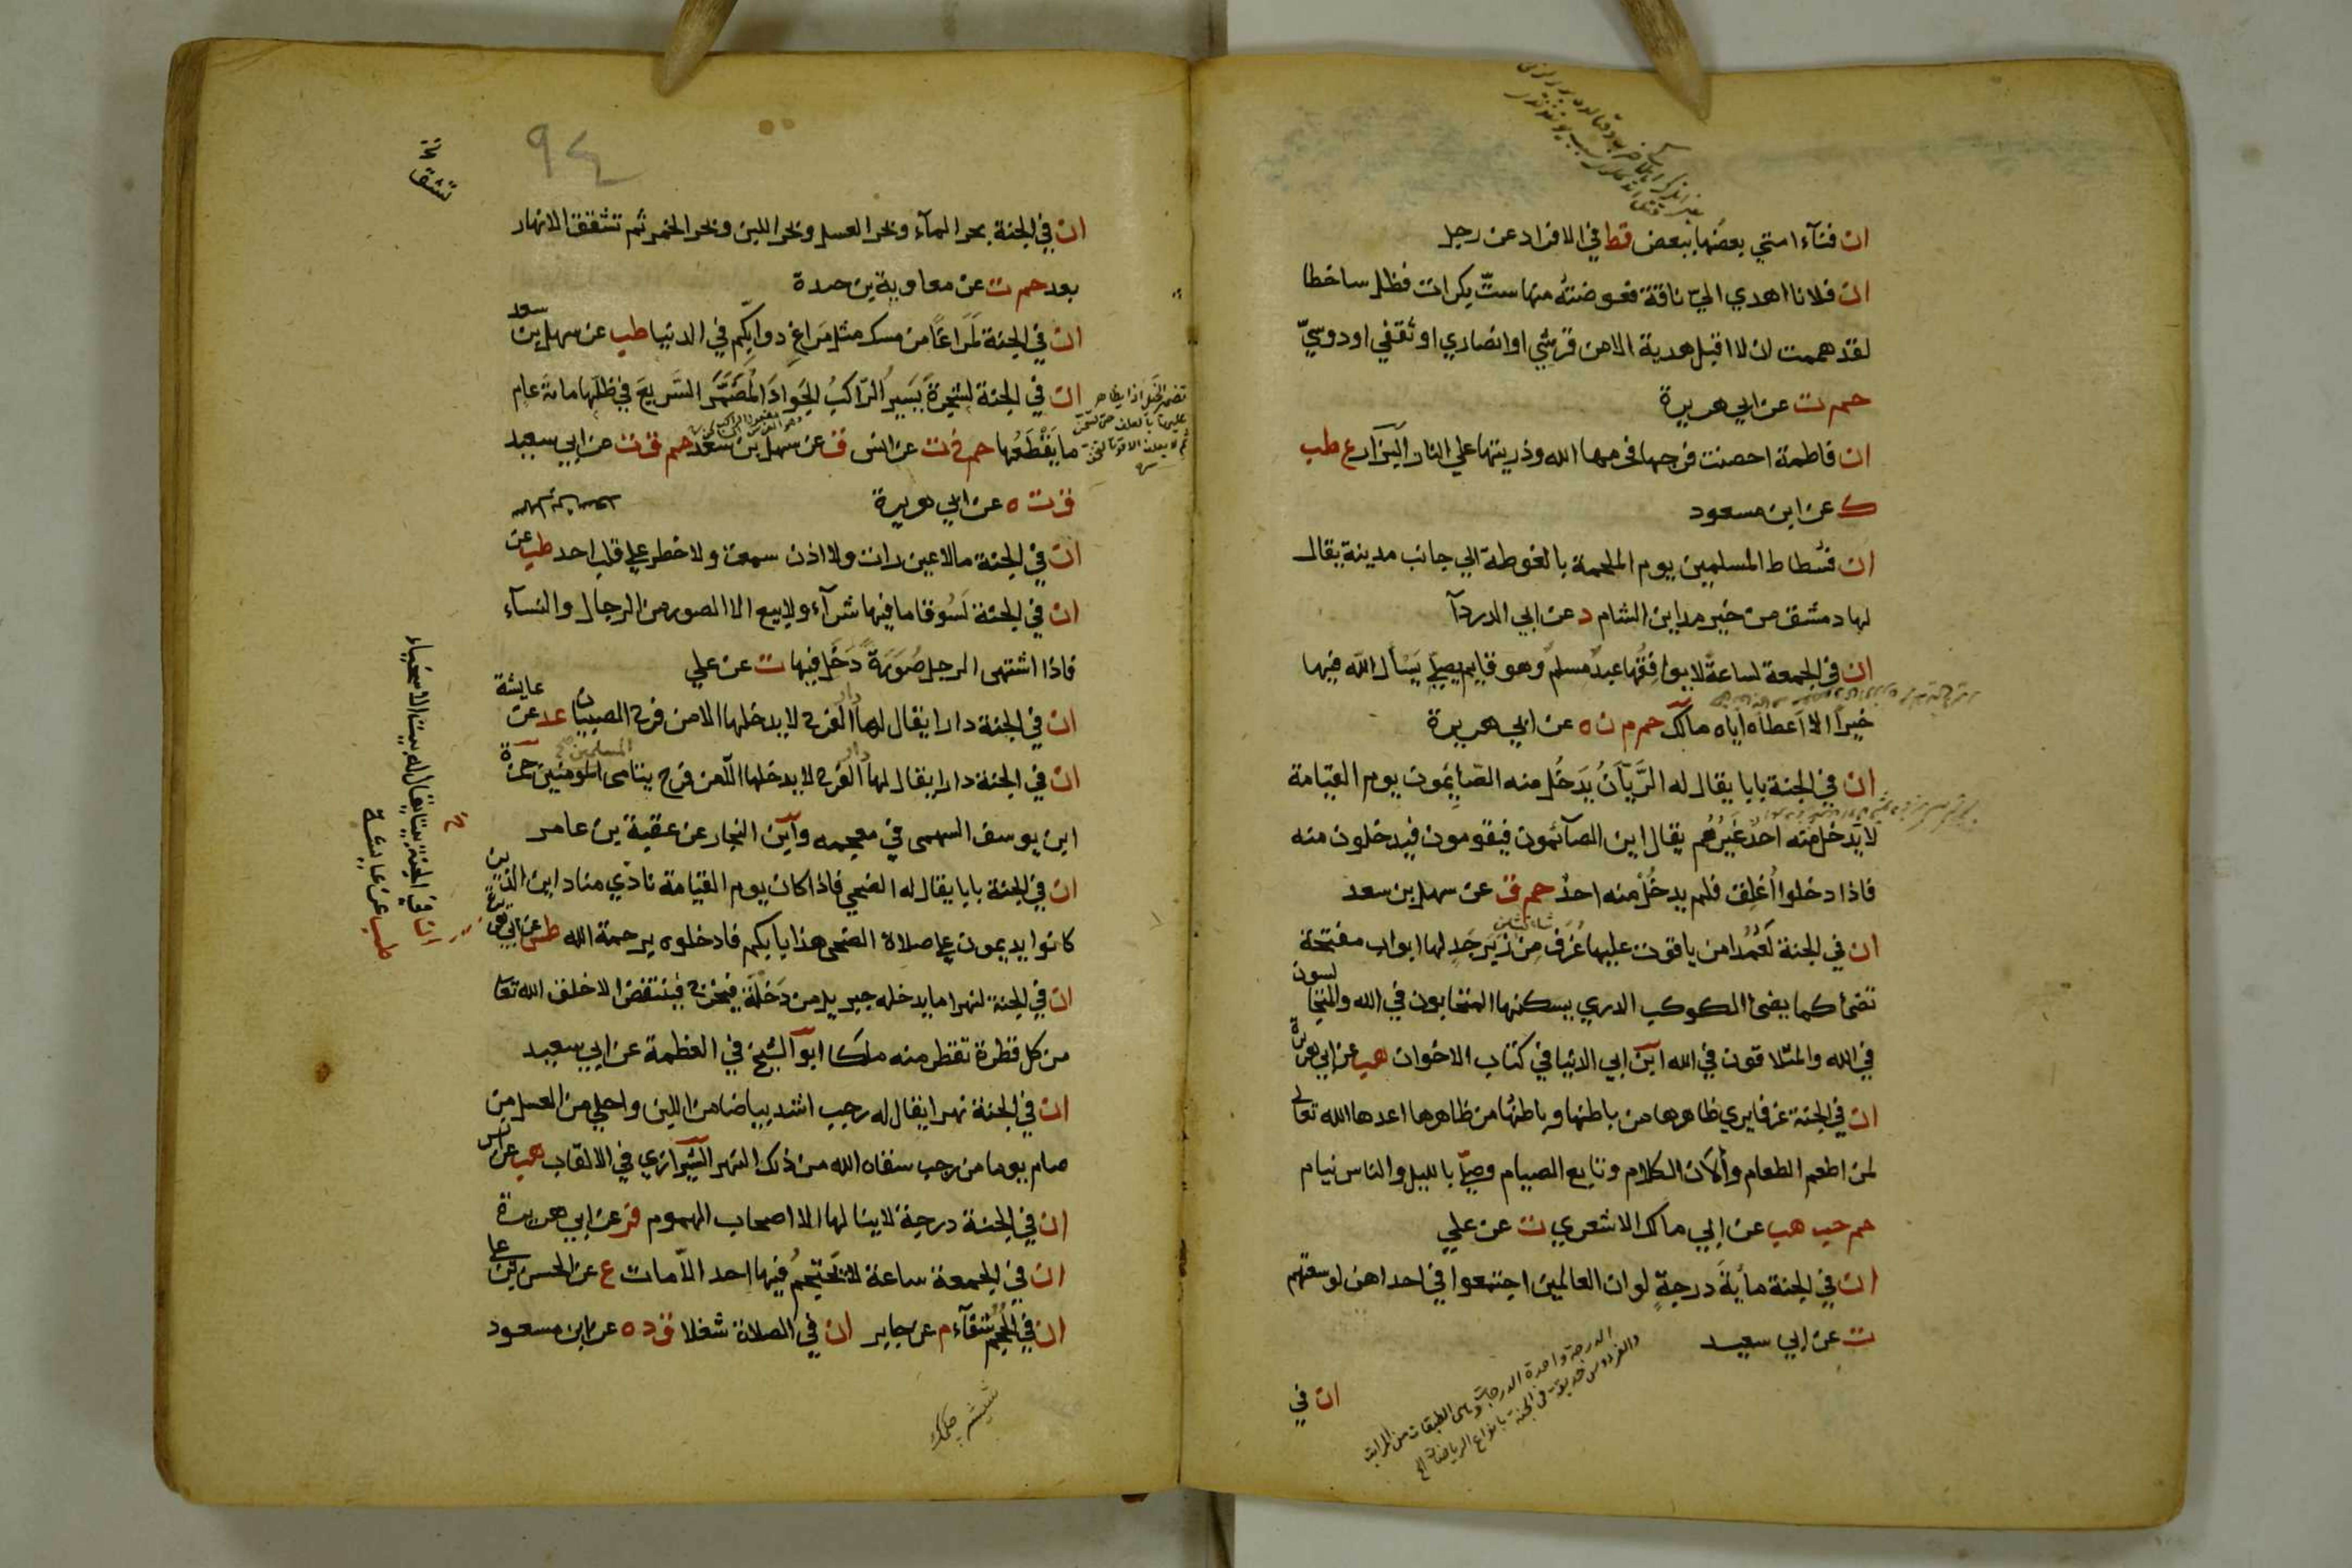 ان فنآء امتي بعضُها ببعض قط في الافراد عن رجل
ان فلانا اهدي اليّ ناقة فعوضتُه منها ستّ بكرات فظل ساخطا
لقد هممت ان لا اقبل هدية الا من قرشي او انصاري او ثقفي او دوسيّ
حم ت عن ابي هريرة
ان فاطمة احصنت فرجها فحرمها الله وذريتها علي النار البزآر ع طب
ك عن ابن مسعود
ان فسطاط المسلمين يوم الملحمة بالغوطة الي جانب مدينة يقال
لها دمشق من خير مداين الشام د عن ابي الدردآ
ان في الجمعة لساعة لا يوافِقُها عبدٌ مسلمٌ وهو قايم يصلي يَسْأل الله فيها
خيرًا الا اَعطاه اياه مالك حم م ن ه عن ابي هريرة
ان في الجنة بابا يقال له الرَّيَّانُ يَدخُل منه الصَّايِمُون يوم القيامة
لا يَدخل منه احدٌ غَيرُهُم يقال اين الصآئمون فيقومون فيدخلون منه
فاذا دخلوا اُغلِق فلم يدخُلْ منه احدٌ حم ق عن سهل بن سعد
ان في الجنة لَعُمُدًا من ياقوت عليها غُرَف مِن زَبَرجَدٍ لها ابواب مفتحة
تضئ كما يضئ الكوكب الدري يسكنها المتحابون في الله والمتجالسون
في الله والمتلاقون في الله ابن ابي الدنيا في كتاب الاخوان هب عن ابي هريرة
ان في الجنة غرفا يري ظاهرها من باطنها وباطنها من ظاهرها اعدها الله تعالي
لمن اطعم الطعام وألان الكلام وتابع الصيام وصلّي بالليل والناس نيام
حم حب هب عن ابي مالك الاشعري ت عن علي
ان في الجنة مأيةَ درجةٍ لو ان العالمين اجتمعوا في احداهن لوسعتهم
ت عن ابي سعيد
الدرجة واحدة الدرجات وهي الطبقات من المراتب
والفردوس حديقة في الجنة
ان في
٩٤
تشقق
ان في الجنة بحر المآء وبحر العسل وبحر اللبن وبحر الخمر ثم تشقق الانهار
بعد حم ت عن معاوية بن حيدة
ان في الجنة لَمَراغًا من مسك مثل مَراغ دوابِّكم في الدنيا طب عن سهل بن سعد
ان في الجنة لشجرةً يَسيرُ الرّاكبُ الجَوادَ المُضَمَّرَ السَّريعَ في ظلها مائة عام
ما يَقْطَعُها حم خ ت عن انس ق عن سهل بن سعد حم ق ت عن ابي سعيد
ق ت ه عن ابي هريرة
ان في الجنة ما لا عين رات ولا اذن سمعت ولا خطر علي قلب احد طب عن
ان في الجنة لَسُوقا ما فيها شرآء ولا بيع الا الصور من الرجال والنسآء
فاذا اشتهى الرجل صُورَةً دَخَل فيها ت عن علي
ان في الجنة دارا يقال لها دار الفرح لا يدخلها الا من فرح الصبيان عد عن عايشة
ان في الجنة دارا يقال لها دار الفرح لا يدخلها الّا من فرح يتامى المومنين حمزة
ابن يوسف السهمى في معجمه وابن النجار عن عقبة بن عامر
ان في الجنة بابا يقال له الضحي فاذا كان يوم القيامة نادي مناد اين الذين
كانوا يديمون علي صلاة الضحى هذا بابكم فادخلوه برحمة الله طس عن ابي هريرة
ان في الجنة لنهرا ما يدخله جبريل من دَخْلَة فيخرج فينتفض الا خلق الله تعا
من كل قطرة تقطر منه ملكا ابو الشيخ في العظمة عن ابي سعيد
ان في الجنة نهرا يقال له رجب اشد بياضا من اللبن واحلي من العسل من
صام يوما من رجب سقاه الله من ذلك النهر الشيرازي في الالقاب هب عن انس
ان في الجنة درجة لا ينالها الا اصحاب الهموم فر عن ابي هريرة
ان في الجمعة ساعة لا يَحتجِمُ فيها احد الّا مات ع عن الحسن بن علي
ان في الحَجم شفآء م عن جابر ان في الصلاة شغلا ق د ه عن ابن مسعود
ان في الجنة بيتا يقال له بيت الاسخياء
طب عن عايشة